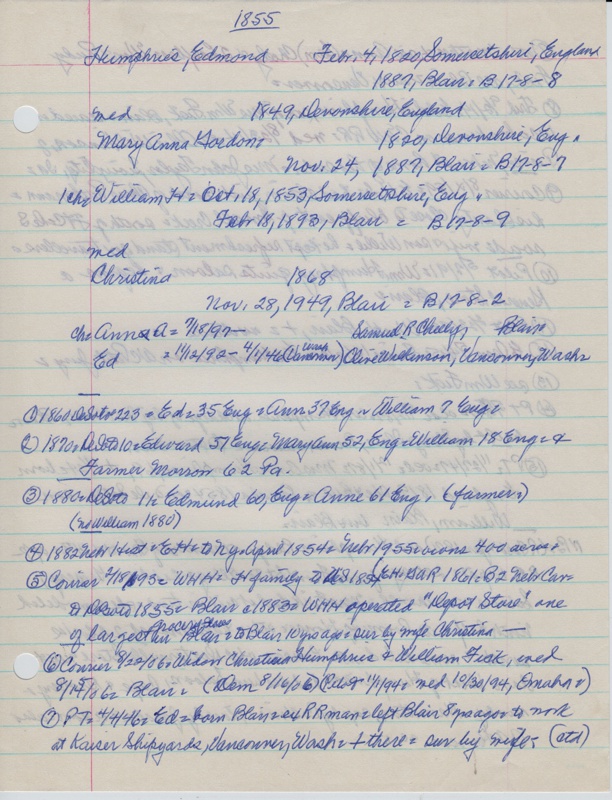 1855
Humphries, Edmond Feb. 4, 1820, Somersetshire, England
1887, Blair = B17-8-8
med 1849, Devonshire, England
Mary Anna 1820, Devonshire, Eng.
Nov. 24, 1887, Blair = B17-8-7
1ch = William H = Oct. 18, 1853, Somersetshire, Eng.
Feb 18, 1893, Blair = B17-8-9
med
Christina 1868
Nov. 28, 1949, Blair = B17-8-2
ch = Anna A = 7/18/97 — Samuel R Blair
Ed = 11/12/92 - 4/1/46 (Vancouver Wash) Olive Wilkinson, Vancouver, Wash =
① 1860 223 = Ed = 35 Eng = Ann 37 Eng = William 7 Eng =
② 1870 = 10 = Edward 51 Eng = Mary Ann 52, Eng = William 18 Eng = &
Farmer Morrow 62 Pa.
③ 1880 = 11 = Edmund 60, Eng = Anne 61 Eng. (farmer =)
(no William 1880)
④ 1882 Nebr Hist = EH = to Ny = April 1854 = Nebr 1955 = owns 400 acres =
⑤ Courier 2/18/93 = WHH = H family to US 1854 (EH GAR 1861 = B2 Nebr Cav =
to 1855 = Blair c 1883 = WHH operated "Depot Store" one
of largest grocery stores in Blair = to Blair 10 yrs ago = sur by wife Christina —
⑥ Courier 8/22/06 = Widow Christina Humphries & William Fick, med
8/15/06 = Blair = (Dem 8/16/06) (Pilot 11/1/94 = med 10/30/94, Omaha =)
⑦ PT = 4/4/46 = Ed = born Blair = ex RR man = left Blair 8 yrs ago = to work
at Kaiser Shipyards, Vancouver, Wash = + there = sur by wife = (ctd)